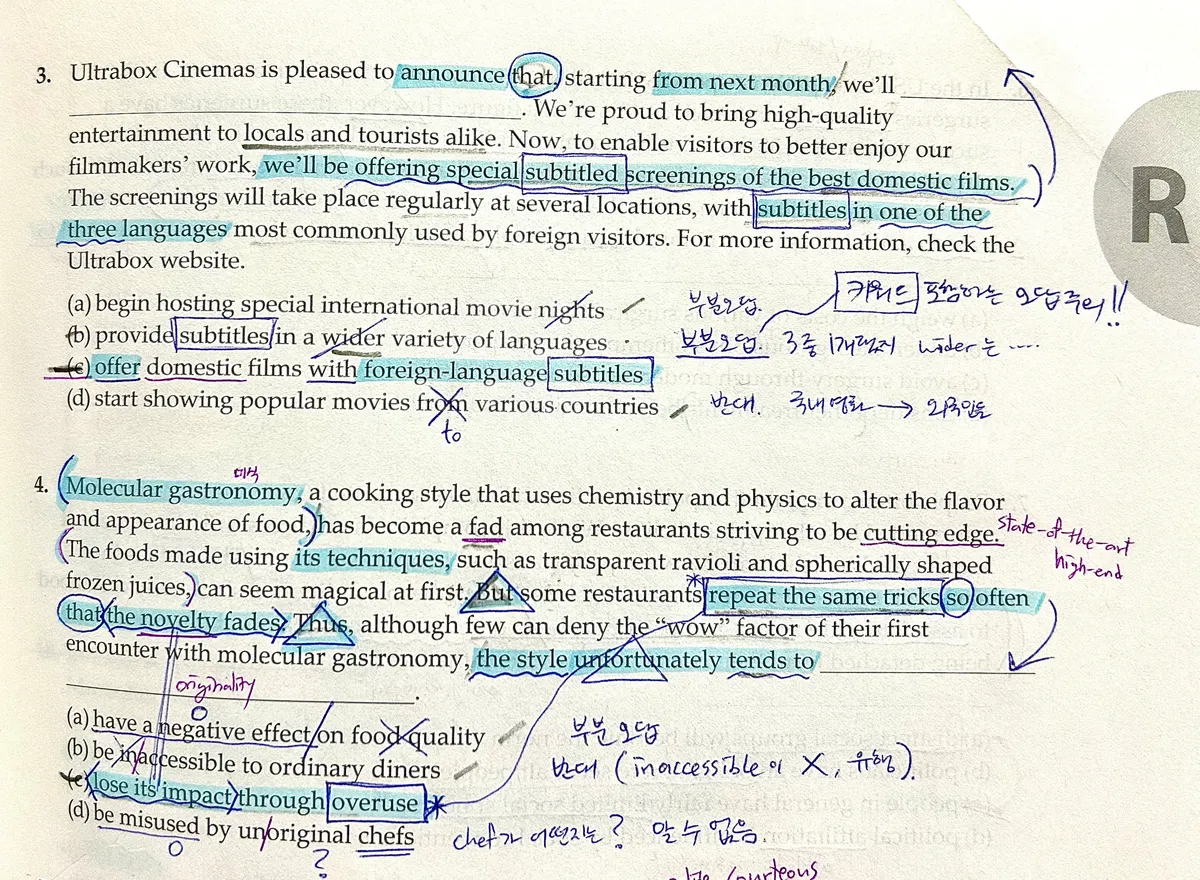 3. Ultrabox Cinemas is pleased to announce that, starting from next month, we'll
. We're proud to bring high-quality
entertainment to locals and tourists alike. Now, to enable visitors to better enjoy our
filmmakers' work, we'll be offering special subtitled screenings of the best domestic films.
The screenings will take place regularly at several locations, with subtitles in one of the
three languages most commonly used by foreign visitors. For more information, check the
Ultrabox website.
R
(a) begin hosting special international movie nights 부분오답. 키워드 포함하는 오답주의!!
(b) provide subtitles in a wider variety of languages 부분오답. 3중 1개런지 wider는 ....
(c) offer domestic films with foreign-language subtitles
(d) start showing popular movies from various countries 반대. 국내영화 → 외국인들
to
미식
4. Molecular gastronomy, a cooking style that uses chemistry and physics to alter the flavor
and appearance of food, has become a fad among restaurants striving to be cutting edge. state-of-the-art
The foods made using its techniques, such as transparent ravioli and spherically shaped high-end
frozen juices, can seem magical at first. But some restaurants repeat the same tricks so often
that the novelty fades. Thus, although few can deny the "wow" factor of their first
encounter with molecular gastronomy, the style unfortunately tends to
originality .
(a) have a negative effect on food quality 부분오답
(b) be inaccessible to ordinary diners 반대 (inaccessible이 X, 유행).
(c) lose its impact through overuse *
(d) be misused by unoriginal chefs chef가 어떤지는? 알 수 없음.
?
courteous